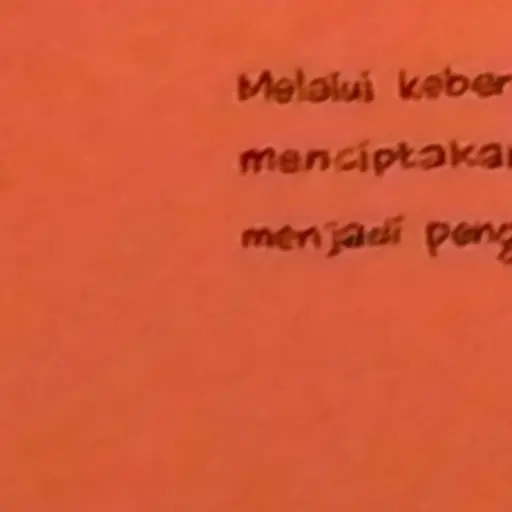 Melalui keber
menciptakan
menjadi peng